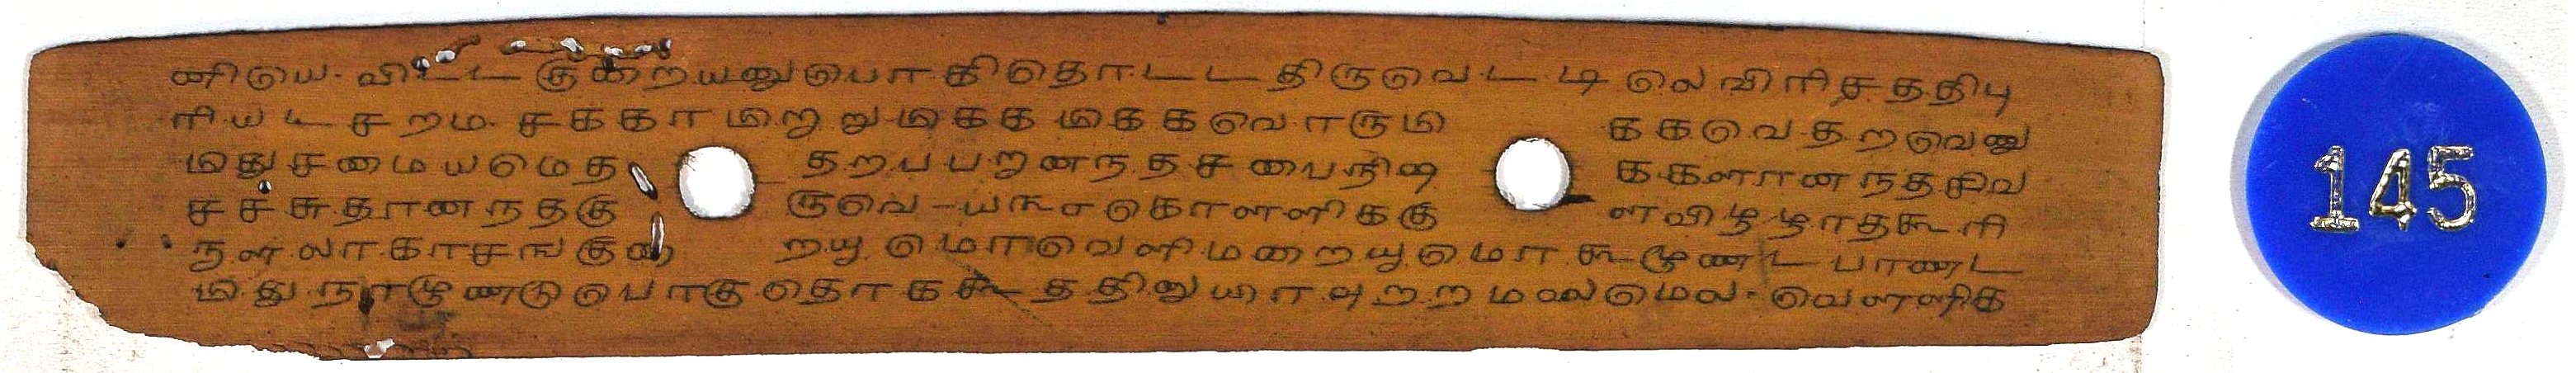 னியெ விட்ட குறையனுபொகிதொடடதிருவெடடிலெவிரிசததிபு
ரியடசறம சககரமிறுறுமிகக மிகககவொருமி ககவெதறவெனு
மிதுசமையமெத தறபபறனநதசபைநிஷ ககளானநதசிவ
சசசுதானநதகு ருவெ யநசகொளளிககு ளவிழழாதகூரி
நளலாகாசஙகுறை றயு மொவெளிமறையுமொ கூமூணட பாணட
மிது நாமூணடுபொகுதொகக ததினுயரவுறறமலைமெல வெளளிக
145